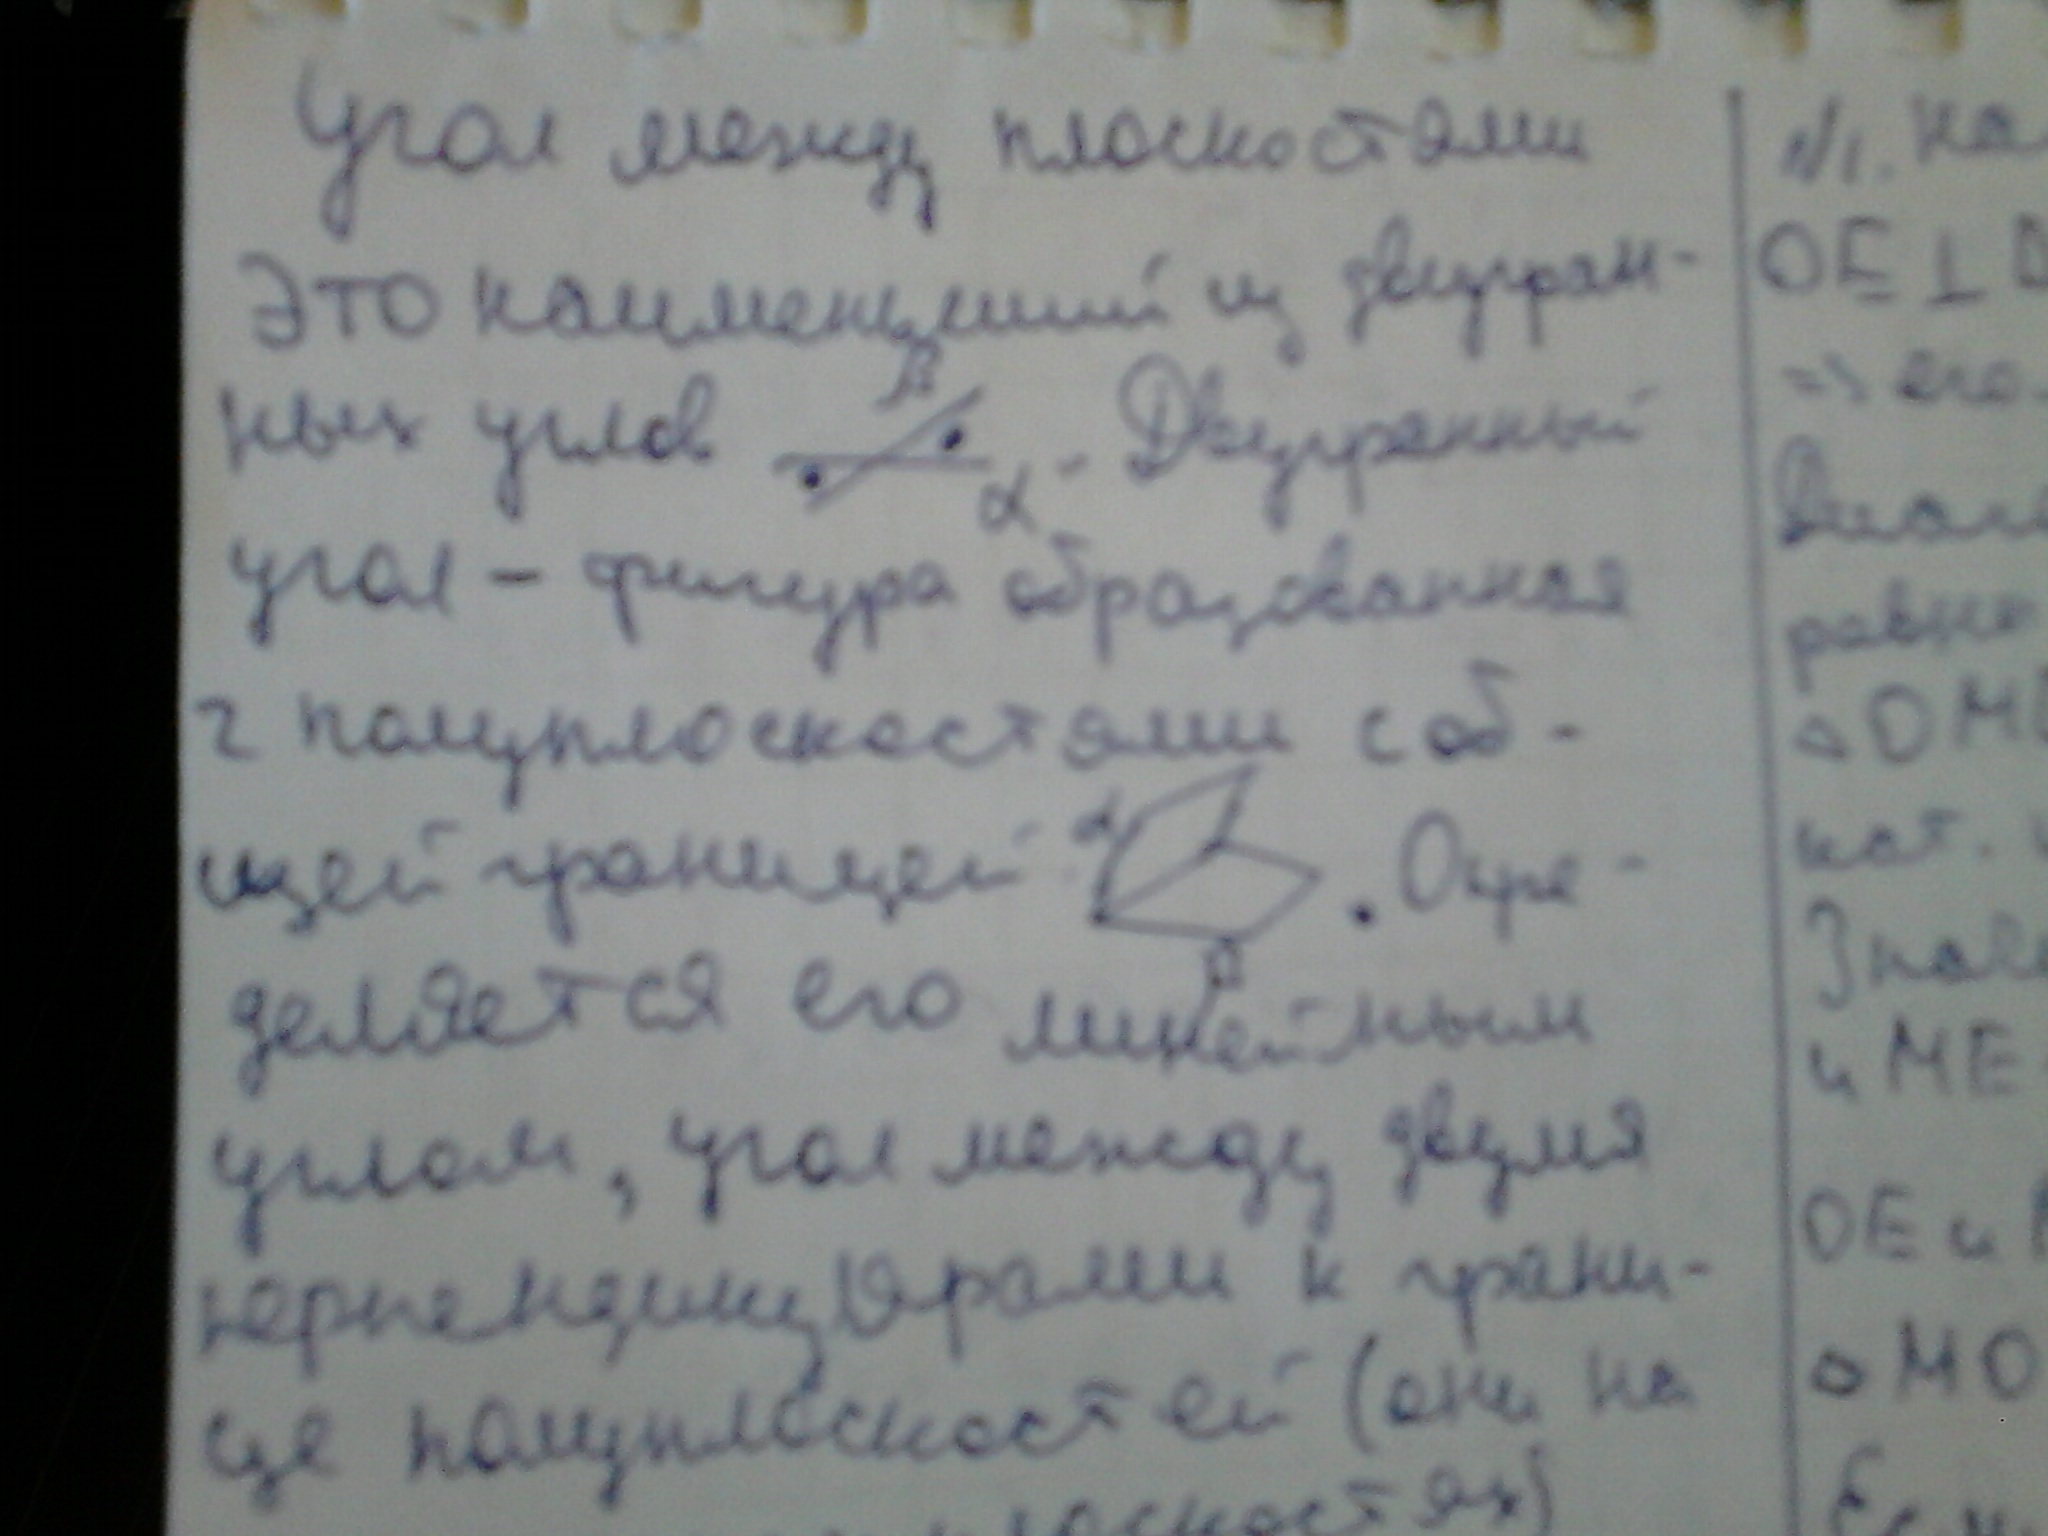 Угол между плоскостями
Это наименьший из двугран-
ных углов β α. Двугранный
угол – фигура образованная
2 полуплоскостями с об-
щей границей α β. Опре-
деляется его линейным
углом, угол между двумя
перпендикулярами к грани-
це полуплоскостей (они на
плоскостях)
№1. На
OE ⊥
=> его
Диаго
равно
△OME
кат.
Знач
и ME
OE и
△MO
Если